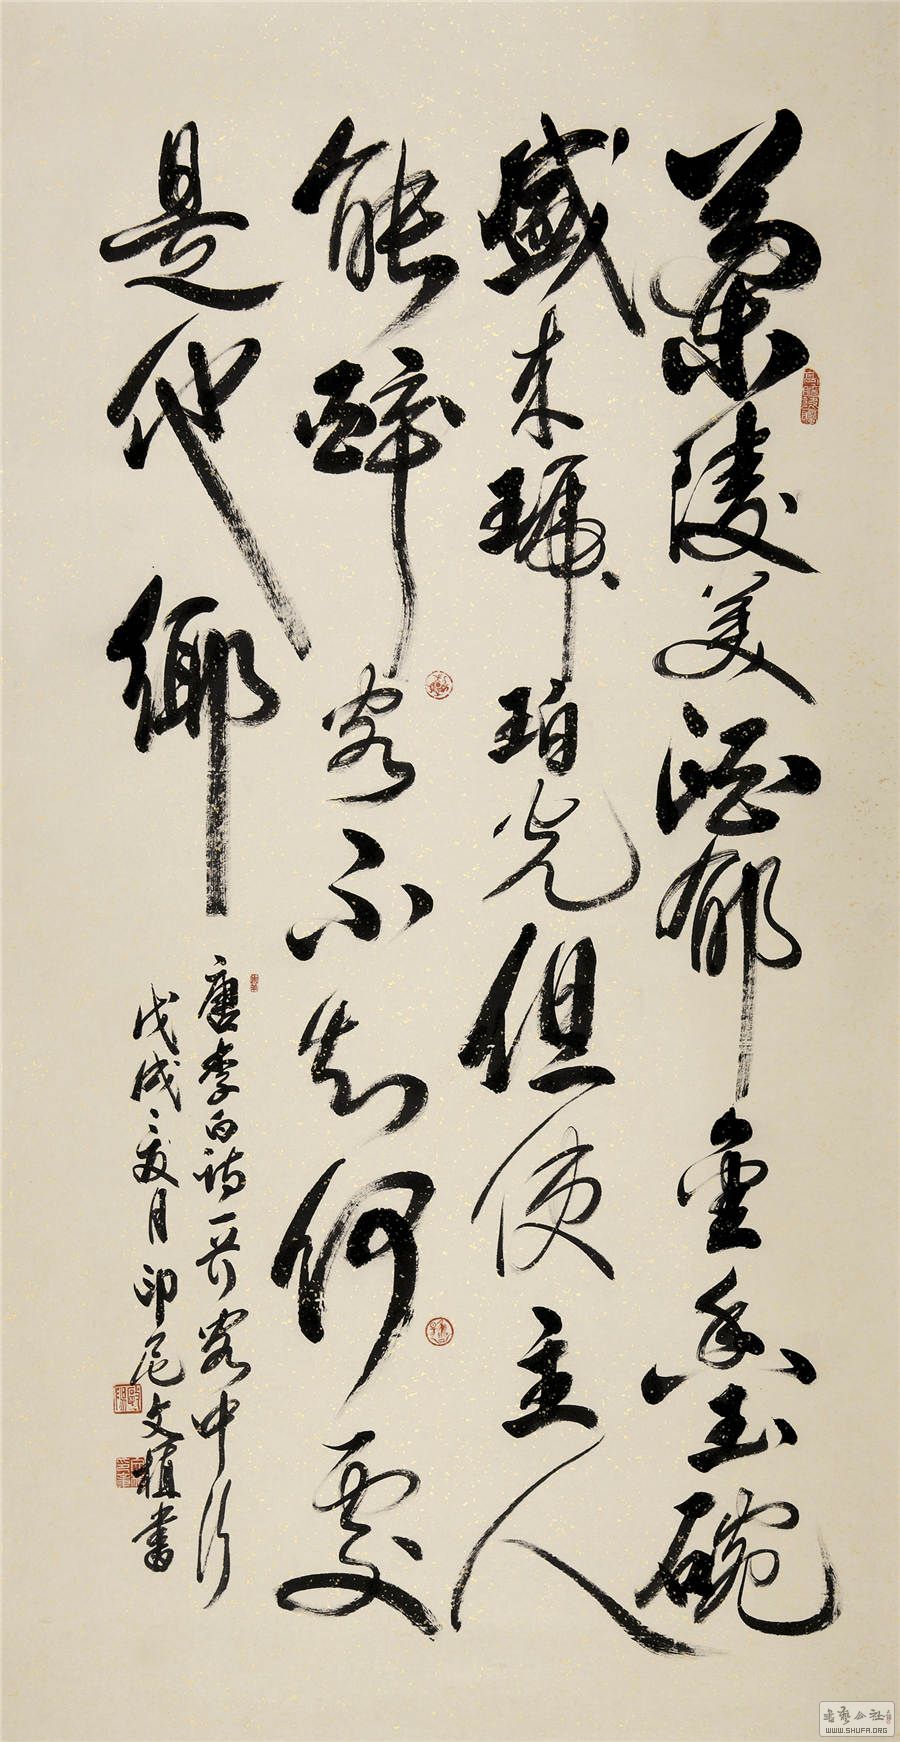 蘭陵美酒郁金香玉碗
盛来琥珀光但使主人
能醉客不知何處
是他鄉
唐李白詩一首客中行
戊戌二〻月印尼文植書
書藝公社
WWW.SHUFA.ORG